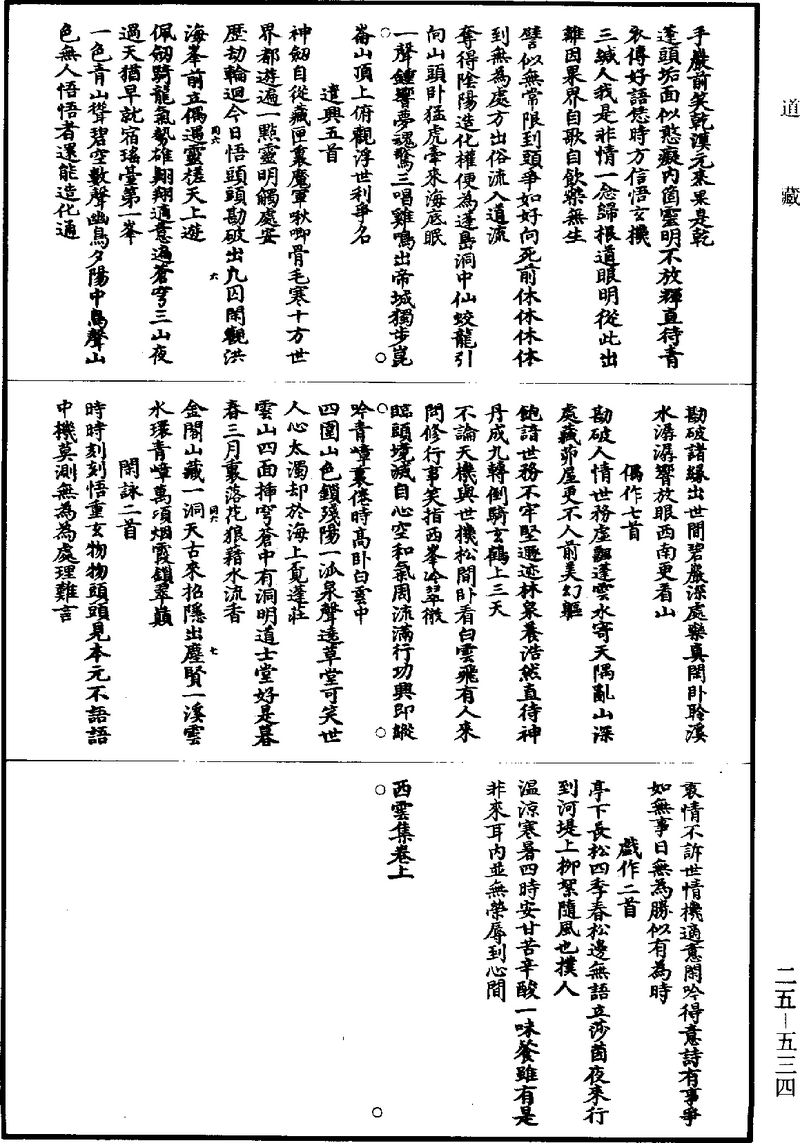 道藏
手嚴前笑乾漢元來果是乾
蓬頭垢面似憨癡内箇靈明不放輝直待青
衣傳好語恁時方信悟玄機
三緘人我是非情一念歸根道眼明從此出
離因果界自歌自飲樂無生
譬似無常限到頭爭如好向死前休休休休
到無為處方出俗流入道流
奪得陰陽造化權便為蓬島洞中仙蛟龍引
向山頭卧猛虎牽來海底眠
一聲鍾響夢魂驚三唱雞鳴出帝城獨步崑
崙山頂上俯觀浮世利爭名
遣興五首
神劒自從藏匣裏魔軍啾唧骨毛寒十方世
界都遊遍一點靈明觸處安
歷劫輪迴今日悟頭頭勘破出九囚閑觀洪
海峯前立偶遇靈槎天上遊
佩劒騎龍氣勢雄翺翔適意過蒼穹三山夜
過天猶早就宿瑤臺第一峯
一色青山聳碧空數聲幽鳥夕陽中鳥聲山
色無人悟悟者還能造化通
勘破諸緣出世間碧巖深處樂真閑卧聆溪
水潺潺響放眼西南更看山
偶作七首
勘破人情世務虛飄蓬雲水寄天隅亂山深
處藏茆屋更不人前美幻軀
飽諳世務不牢堅遯迹林泉養浩然直待神
丹成九轉倒騎玄鶴上三天
不論天機與世機松間卧看白雲飛有人來
問修行事笑指西峯冷翠微
臨頭境滅自心空和氣周流滿行功興即縱
吟青嶂裏倦時高卧白雲中
四圍山色鎖殘陽一派泉聲遶草堂可笑世
人心太濁却於海上覓蓬莊
雲山四面揷穹蒼中有洞明道士堂好是暮
春三月裏落花狼藉水流香
金閣山藏一洞天古來招隱出塵賢一溪雲
水環青嶂萬頃烟霞鎖翠巔
閑詠二首
時時刻刻悟重玄物物頭頭見本元不語語
中機莫測無為為處理難言
衷情不訴世情機適意閑吟得意詩有事爭
如無事日無為勝似有為時
戲作二首
亭下長松四季春松邊無語立莎茵夜來行
到河堤上柳絮隨風也撲人
溫涼寒暑四時安甘苦辛酸一味餐雖有是
非來耳内並無榮辱到心間
西雲集卷上
二五—五三四